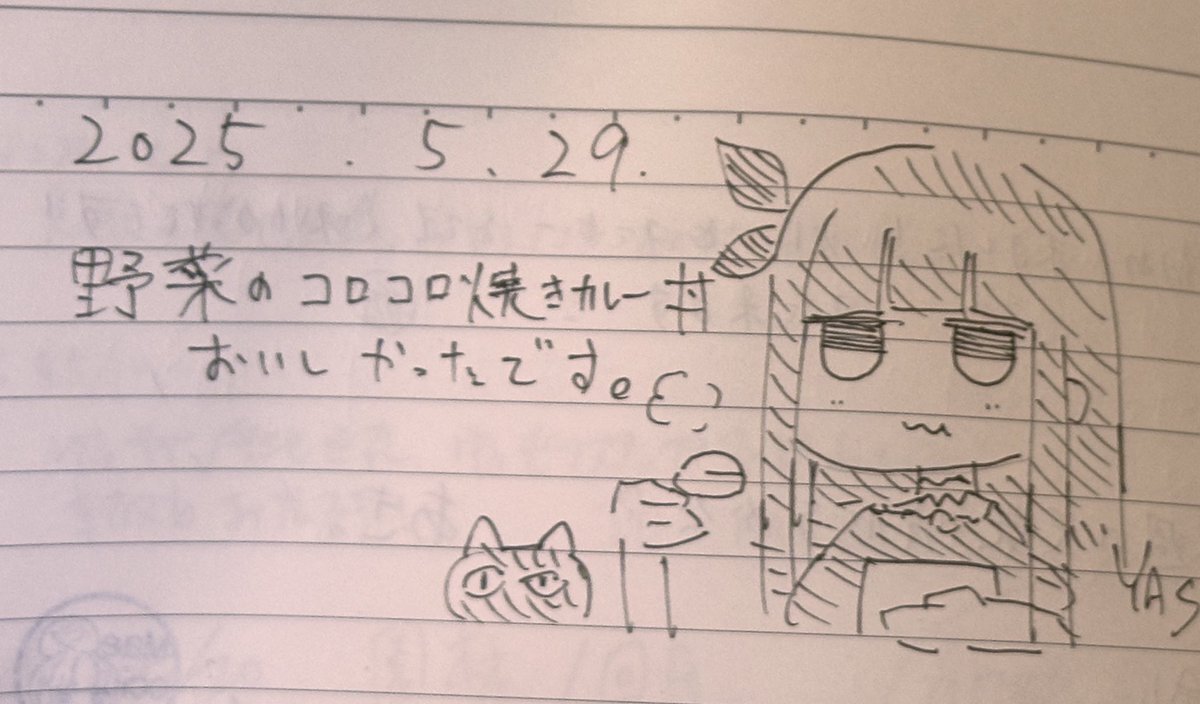 2025.5.29.
野菜のコロコロ焼きカレー丼
おいしかったです。
YAS